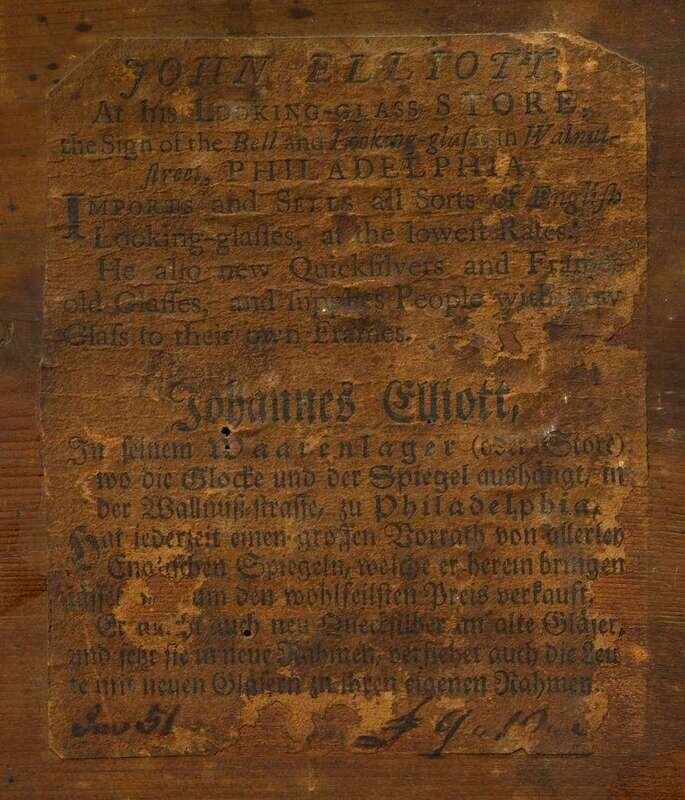 JOHN ELLIOTT,
At his LOOKING-GLASS STORE,
the Sign of the Bell and Looking-glaſs, in Walnut-
ſtreet, PHILADELPHIA,
IMPORTS and SELLS all Sorts of Engliſh
Looking-glaſſes, at the loweſt Rates.
He alſo new Quickſilvers and Frames
old Glaſſes, and ſupplies People with new
Glaſs to their own Frames.
Johannes Elliott,
In ſeinem Waarenlager (oder Store)
wo die Glocke und der Spiegel aushängt, in
der Wallnuß-ſtraſſe, zu Philadelphia,
Hat jederzeit einen groſſen Vorrath von allerley
Engliſchen Spiegeln, welche er herein bringen
läſſet um den wohlfeilſten Preis verkauft.
Er auch neu Queckſilber an alte Gläſer,
und ſetzt ſie in neue Rahmen, verſiehet auch die Leu
te mit neuen Gläſern zu ihren eigenen Rahmen.
51